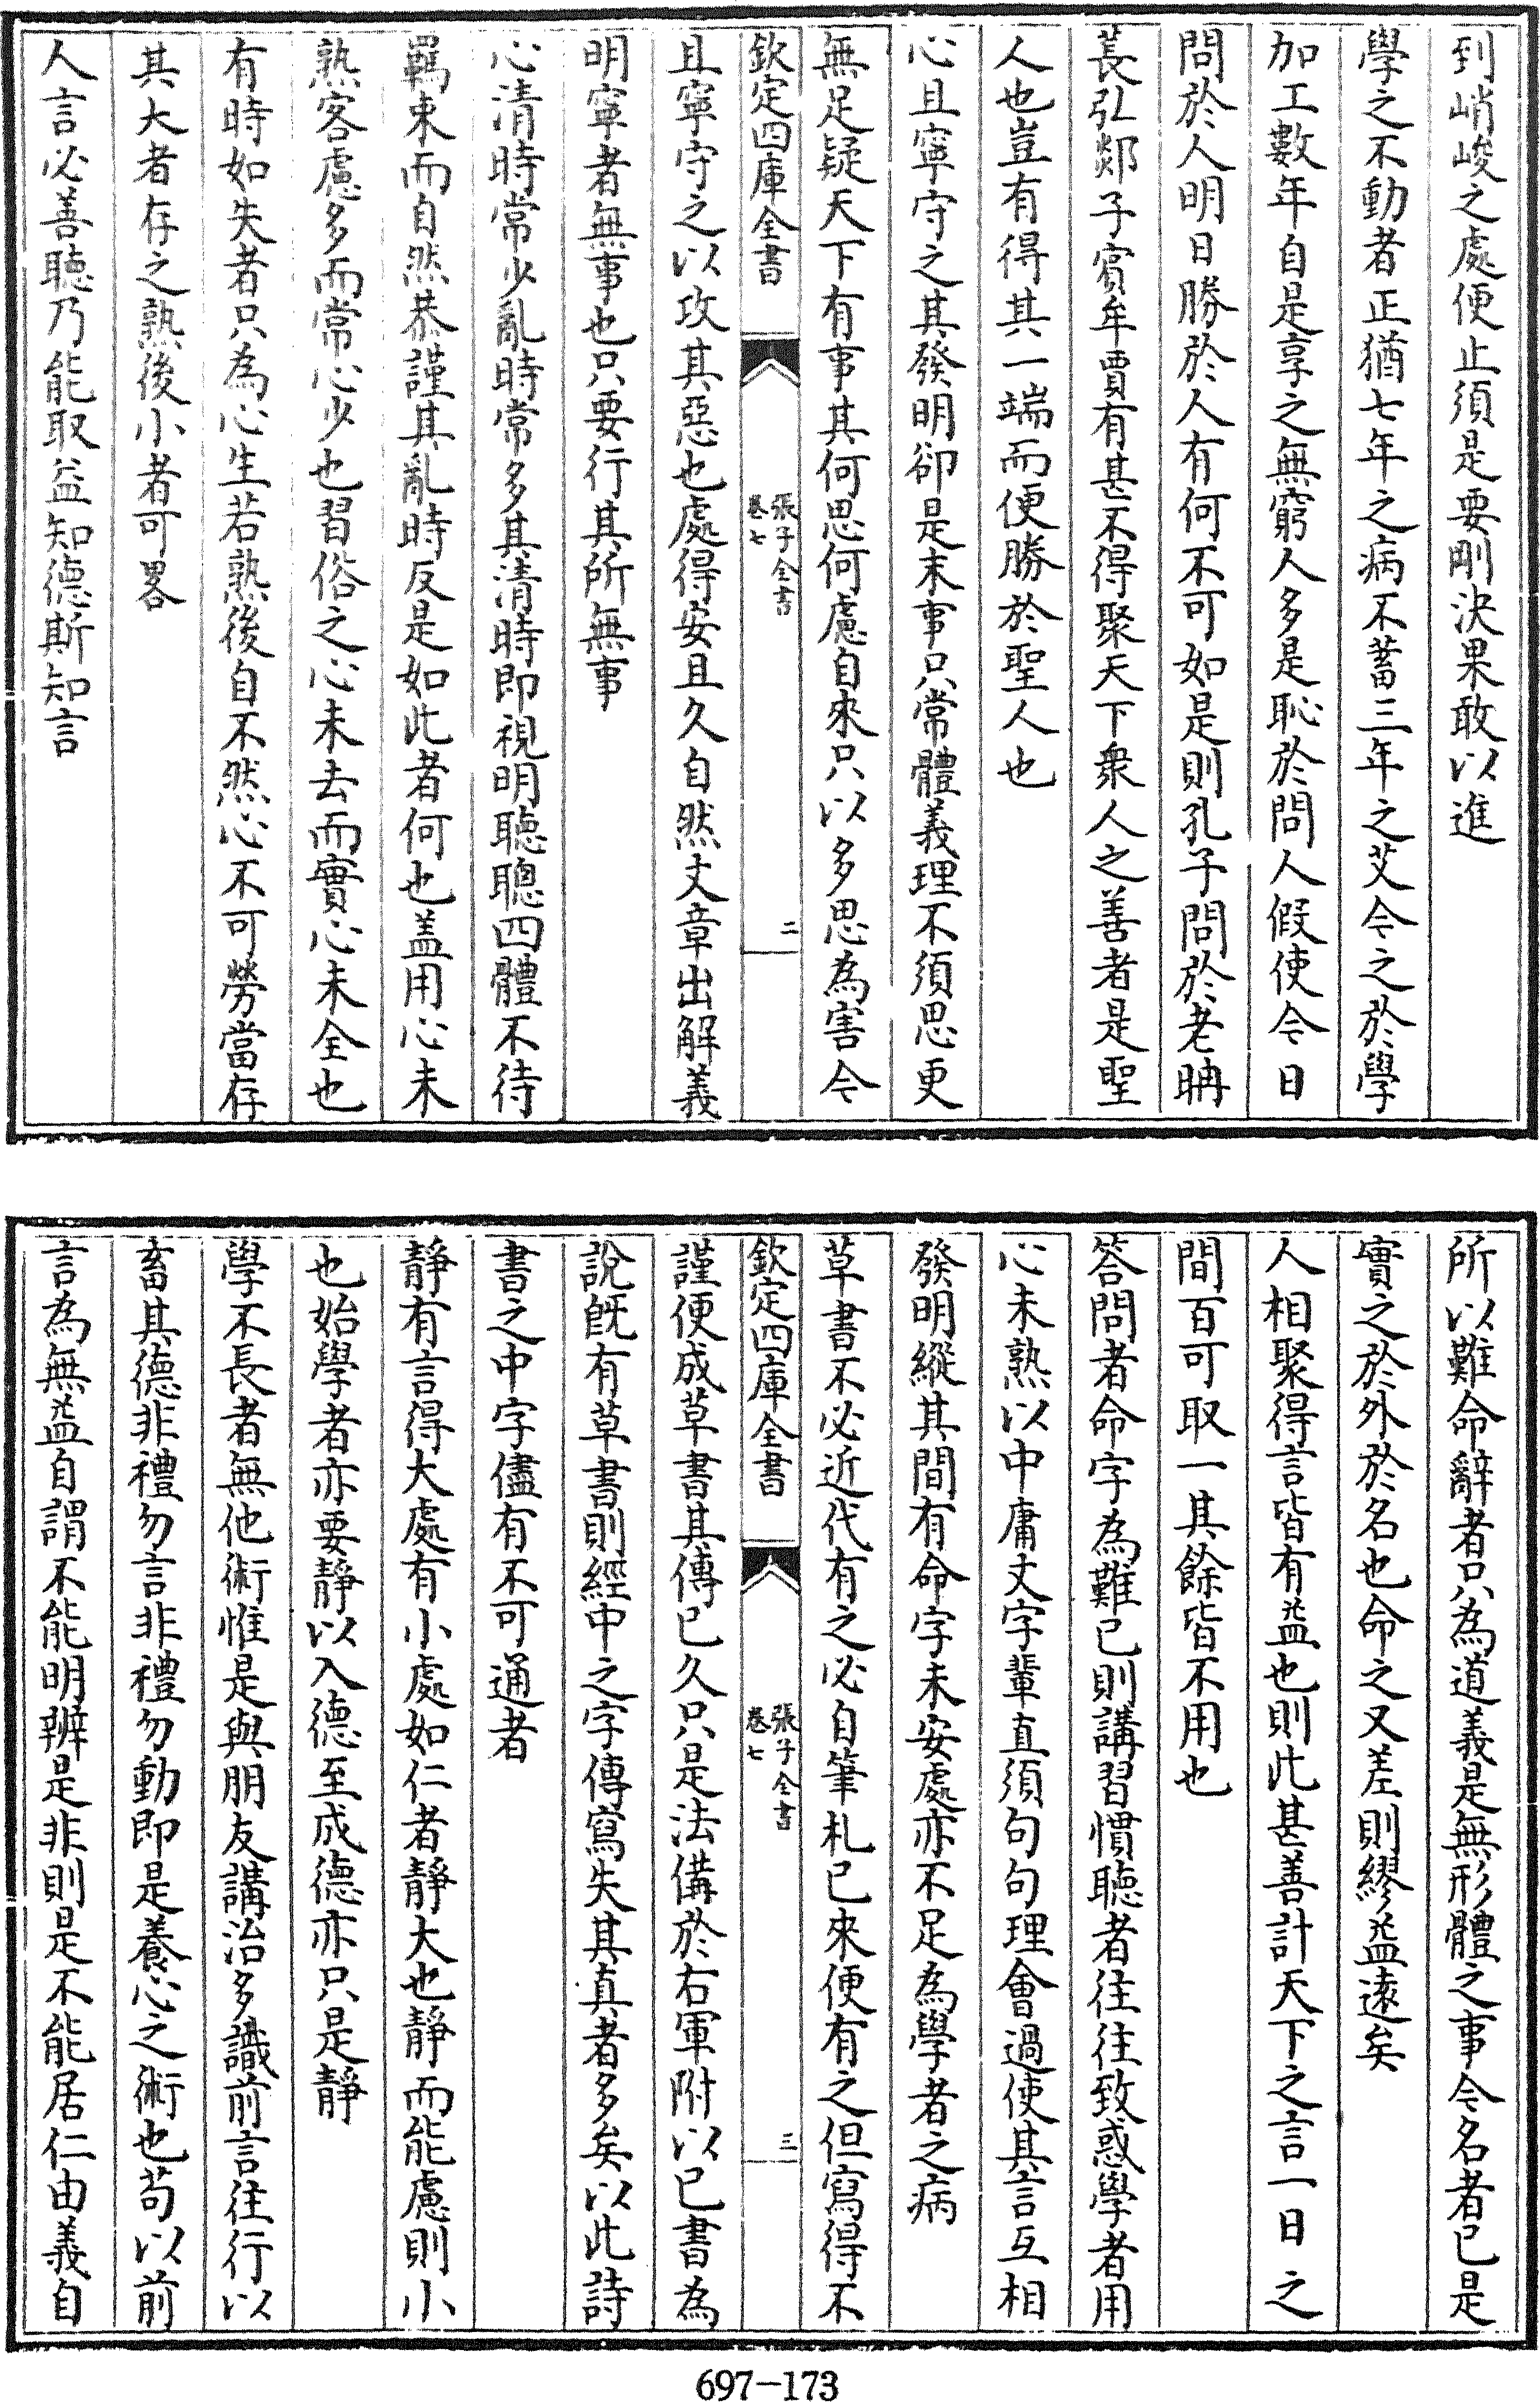 到峭峻之處便止須是要剛決果敢以進
學之不動者正猶七年之病不蓄三年之艾今之於學
加工數年自是享之無窮人多是恥於問人假使今日
問於人明日勝於人有何不可如是則孔子問於老聃
萇弘郯子賓牟賈有甚不得聚天下衆人之善者是聖
人也豈有得其一端而便勝於聖人也
心且寧守之其發明卻是末事只常體義理不須思更
無足疑天下有事其何思何慮自來只以多思為害今
欽定四庫全書
張子全書
卷七
二
且寧守之以攻其惡也處得安且久自然文章出解義
明寧者無事也只要行其所無事
心清時常少亂時常多其清時即視明聽聰四體不待
羈束而自然恭謹其亂時反是如此者何也盖用心未
熟客慮多而常心少也習俗之心未去而實心未全也
有時如失者只為心生若熟後自不然心不可勞當存
其大者存之熟後小者可畧
人言必善聽乃能取益知德斯知言
所以難命辭者只為道義是無形體之事今名者已是
實之於外於名也命之又差則繆益遠矣
人相聚得言皆有益也則此甚善計天下之言一日之
間百可取一其餘皆不用也
答問者命字為難已則講習慣聽者往往致惑學者用
心未熟以中庸文字輩直須句句理會過使其言互相
發明縱其間有命字未安處亦不足為學者之病
草書不必近代有之必自筆札已來便有之但寫得不
欽定四庫全書
張子全書
卷七
三
謹便成草書其傳已久只是法備於右軍附以已書為
說旣有草書則經中之字傳寫失其真者多矣以此詩
書之中字儘有不可通者
靜有言得大處有小處如仁者靜大也靜而能慮則小
也始學者亦要靜以入德至成德亦只是靜
學不長者無他術惟是與朋友講治多識前言往行以
畜其德非禮勿言非禮勿動即是養心之術也苟以前
言為無益自謂不能明辨是非則是不能居仁由義自
697-173